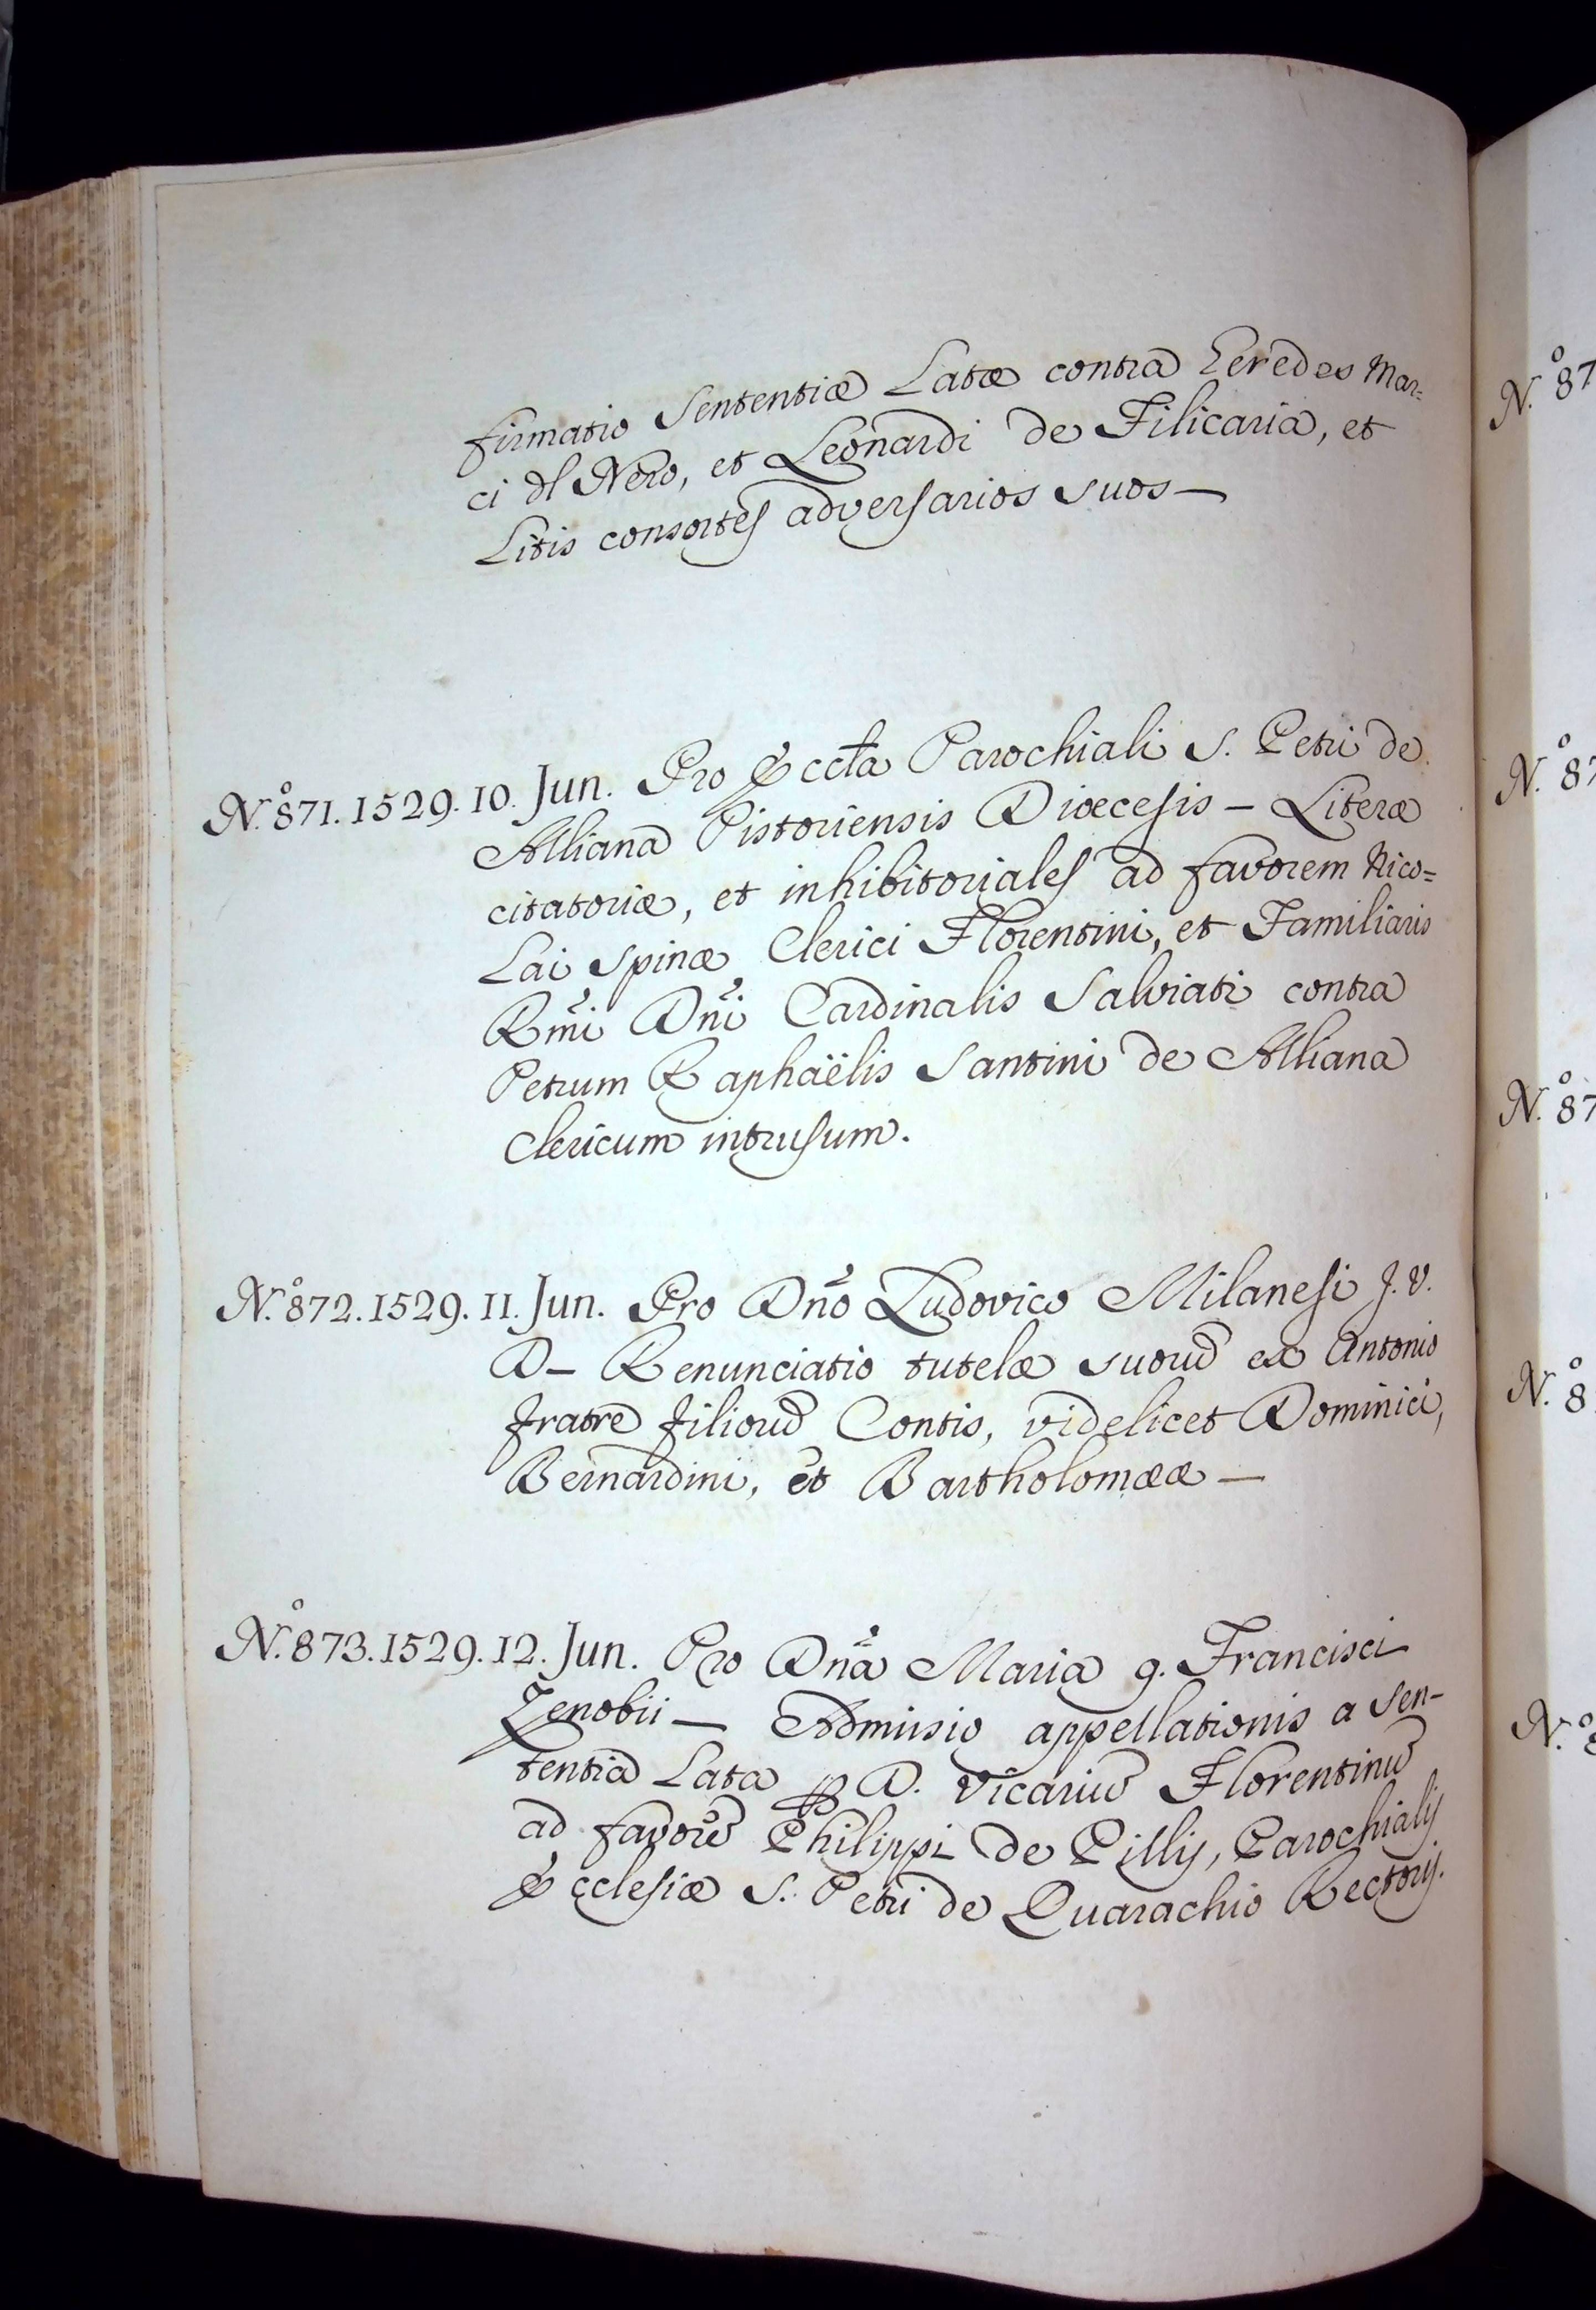 firmatio Sententiæ Latæ contra Heredes Mar=
ci dl Nero, et Leonardi de Filicaria, et
Litis consortes adversarios suos —
N.º 871. 1529. 10. Jun. Pro Eccła Parochiali S. Petri de
Alliana Pistoriensis Diœcesis — Literæ
citatoriæ, et inhibitoriales ad favorem Nico=
Lai Spinæ Clerici Florentini, et Familiaris
Rm̃i Dñi Cardinalis Salviati contra
Petrum Raphaëlis Santini de Alliana
Clericum intrusum.
N.º 872. 1529. 11. Jun. Pro Dño Ludovico Milanesi J. V.
D — Renunciatio tutelæ suorũ ex Antonio
fratre filiorũ Contis, videlicet Dominici,
Bernardini, et Bartholomææ —
N.º 873. 1529. 12. Jun. Pro Dña Maria q. Francisci
Zenobii — Admisio appellationis a Sen-
tentia Lata ꝑ D. Vicariũ Florentinũ
ad favorẽ Philippi de Pillis, Parochialis
Ecclesiæ S. Petri de Quarachio Rectoris.
N.º 87
N.º 87
N.º 87
N.º 8
N.º 8